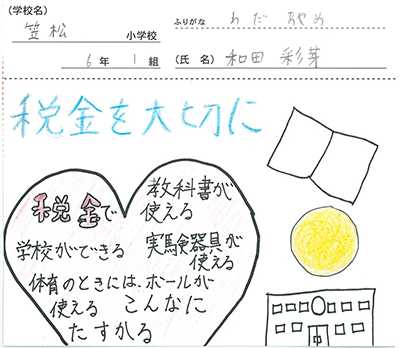 (学校名)
笠松 小学校
6年 1組
ふりがな わだ あやめ
(氏名) 和田 彩芽
税金を大切に
税金で
学校ができる
体育のときには、ボールが
使える
教科書が
使える
実験器具が
使える
こんなに
たすかる